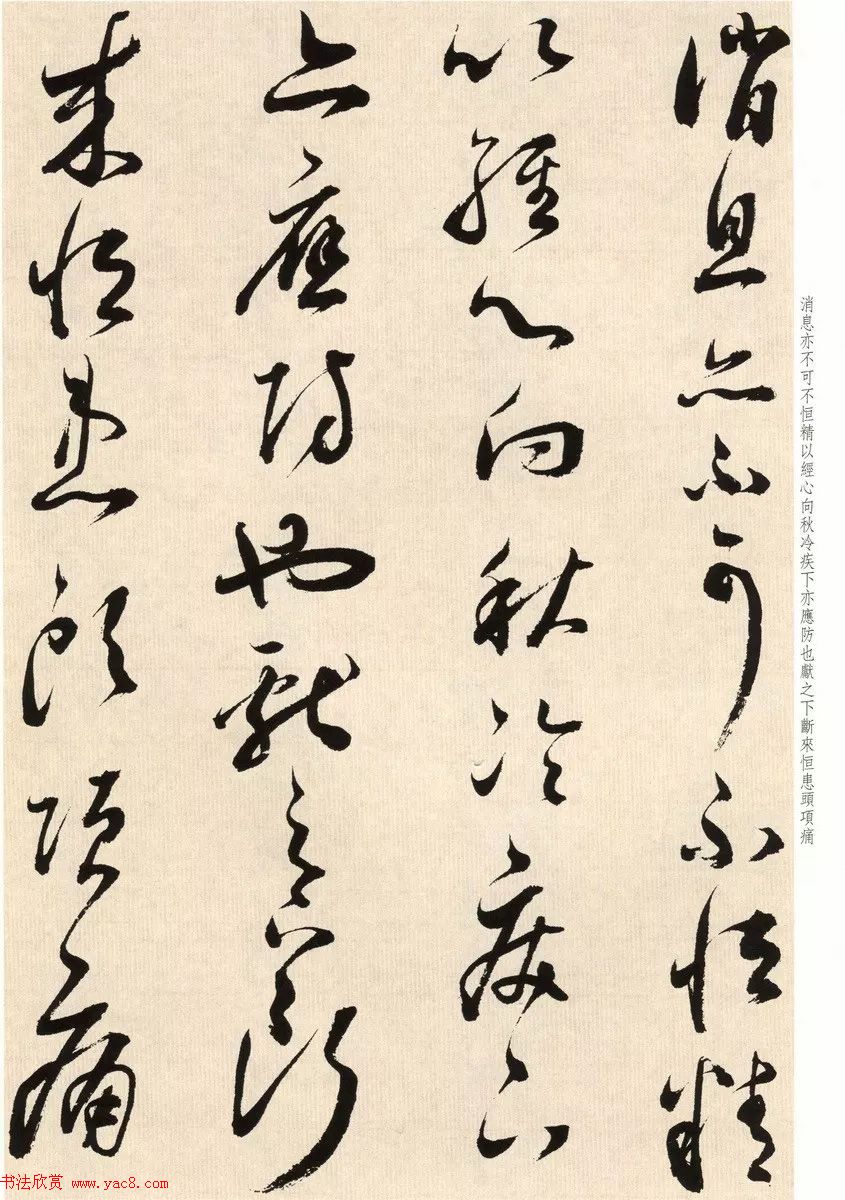 消息亦不可不恒精
以經心向秋冷疾下
亦應防也獻之下斷
來恒患頭項痛
消息亦不可不恒精以經心向秋冷疾下亦應防也獻之下斷來恒患頭項痛
书法欣赏 www.yac8.com